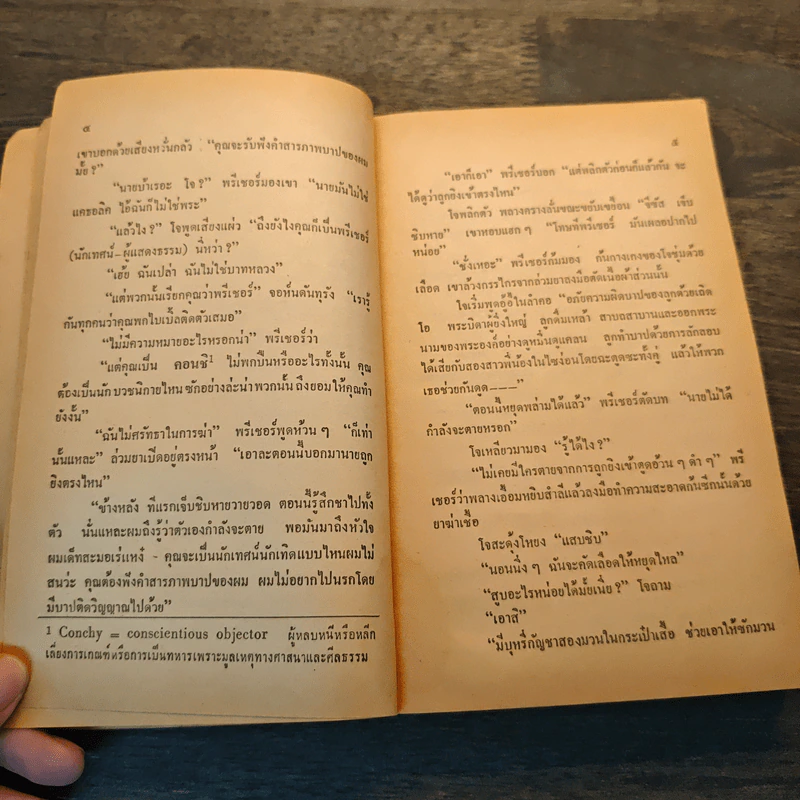 ๔
เขาบอกด้วยเสียงหวั่นกลัว “คุณจะรับฟังคำสารภาพบาปของผม
มั้ย?”
“นายบ้าเรอะ โจ?” พรีเชอร์มองเขา “นายมันไม่ใช่
แคธอลิค ไอ้ฉันก็ไม่ใช่พระ”
“แล้วไง?” โจพูดเสียงแผ่ว “ถึงยังไงคุณก็เป็นพรีเชอร์
(นักเทศน์-ผู้แสดงธรรม) นี่หว่า?”
“เฮ้ย ฉันเปล่า ฉันไม่ใช่บาทหลวง”
“แต่พวกนั้นเรียกคุณว่าพรีเชอร์” จอห์นดันทุรัง “เรารู้
กันทุกคนว่าคุณพกไบเบิ้ลติดตัวเสมอ”
“ไม่มีความหมายอะไรหรอกน่า” พรีเชอร์ว่า
“แต่คุณเป็น คอนชี¹ ไม่พกปืนหรืออะไรทั้งนั้น คุณ
ต้องเป็นนักบวชนิกายไหนซักอย่างล่ะน่า พวกนั้นถึงยอมให้คุณทำ
ยังงั้น”
“ฉันไม่ศรัทธาในการฆ่า” พรีเชอร์พูดห้วน ๆ “ก็เท่า
นั้นแหละ” ล่วมยาเปิดอยู่ตรงหน้า “เอาละตอนนี้บอกมานายถูก
ยิงตรงไหน”
“ข้างหลัง ทีแรกเจ็บชิบหายวายวอด ตอนนี้รู้สึกชาไปทั้ง
ตัว นั่นแหละผมถึงรู้ว่าตัวเองกำลังจะตาย พอมันมาถึงหัวใจ
ผมเด็ทสะมอเร่แหง๋ - คุณจะเป็นนักเทศน์นักเทิดแบบไหนผมไม่
สนว่ะ คุณต้องฟังคำสารภาพบาปของผม ผมไม่อยากไปนรกโดย
มีบาปติดวิญญาณไปด้วย”
¹ Conchy = conscientious objector ผู้หลบหนีหรือหลีก
เลี่ยงการเกณฑ์หรือการเป็นทหารเพราะมูลเหตุทางศาสนาและศีลธรรม
๕
“เอาก็เอา” พรีเชอร์บอก “แต่พลิกตัวก่อนก็แล้วกัน จะ
ได้ดูว่าถูกยิงเข้าตรงไหน”
โจพลิกตัว พลางครางลั่นขณะขยับเขยื้อน “จีซัส เจ็บ
ชิบหาย” เขาหอบแฮก ๆ “โทษทีพรีเชอร์ มันเผลอปากไป
หน่อย”
“ชั่งเหอะ” พรีเชอร์ก้มมอง ก้นกางเกงของโจชุ่มด้วย
เลือด เขาล้วงกรรไกรจากล่วมยาลงมือตัดเนื้อผ้าส่วนนั้น
โจเริ่มพูดอู้อี้ในลำคอ “อภัยความผิดบาปของลูกด้วยเถิด
โอ พระบิดาผู้ยิ่งใหญ่ ลูกดื่มเหล้า สาบถสาบานและออกพระ
นามของพระองค์อย่างดูหมิ่นดูแคลน ลูกทำบาปด้วยการลักลอบ
ได้เสียกับสองสาวพี่น้องในไซ่ง่อนโดยฉะดูดซะทั้งคู่ แล้วให้พวก
เธอช่วยกันดูด———”
“ตอนนี้หยุดพล่ามได้แล้ว” พรีเชอร์ตัดบท “นายไม่ได้
กำลังจะตายหรอก”
โจเหลียวมามอง “รู้ได้ไง?”
“ไม่เคยมีใครตายจากการถูกยิงเข้าตูดอ้วน ๆ ดำ ๆ” พรี
เชอร์ว่าพลางเอื้อมหยิบสำลีแล้วลงมือทำความสะอาดก้นซีกนั้นด้วย
ยาฆ่าเชื้อ
โจสะดุ้งโหยง “แสบชิบ”
“นอนนิ่ง ๆ ฉันจะคัดเลือดให้หยุดไหล”
“สูบอะไรหน่อยได้มั้ยเนี่ย?” โจถาม
“เอาสิ”
“มีบุหรี่กัญชาสองมวนในกระเป๋าเสื้อ ช่วยเอาให้ซักมวน